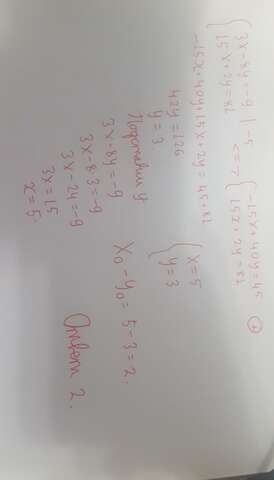 { 3x - 8y = -9 | · -5 <=> { -15x + 40y = 45 (+)
{ 15x + 2y = 81 { 15x + 2y = 81
-15x + 40y + 15x + 2y = 45 + 81
42y = 126
y = 3
Подставим y
3x - 8y = -9
3x - 8·3 = -9
3x - 24 = -9
3x = 15
x = 5.
{ x = 5
{ y = 3
x₀ - y₀ = 5 - 3 = 2.
Ответ 2.